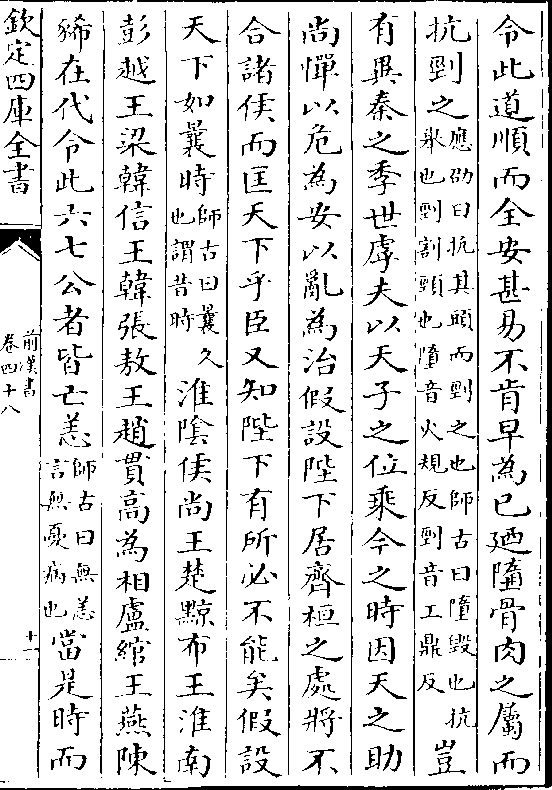 令此道順而全安甚易不肯早為已廼隳骨肉之屬而
抗剄之應劭曰抗其頭而剄之也師古曰隳毀也抗
舉也剄割頸也隳音火規反剄音工鼎反豈
有異秦之季世虖夫以天子之位乘今之時因天之助
尚憚以危為安以亂為治假設陛下居齊桓之處將不
合諸侯而匡天下乎臣又知陛下有所必不能矣假設
天下如曩時師古曰曩久
也謂昔時淮陰侯尚王楚黥布王淮南
彭越王梁韓信王韓張敖王趙貫高為相盧綰王燕陳
豨在代令此六七公者皆亡恙師古曰無恙
言無憂病也當是時而
欽定四庫全書
前漢書
卷四十八
十一